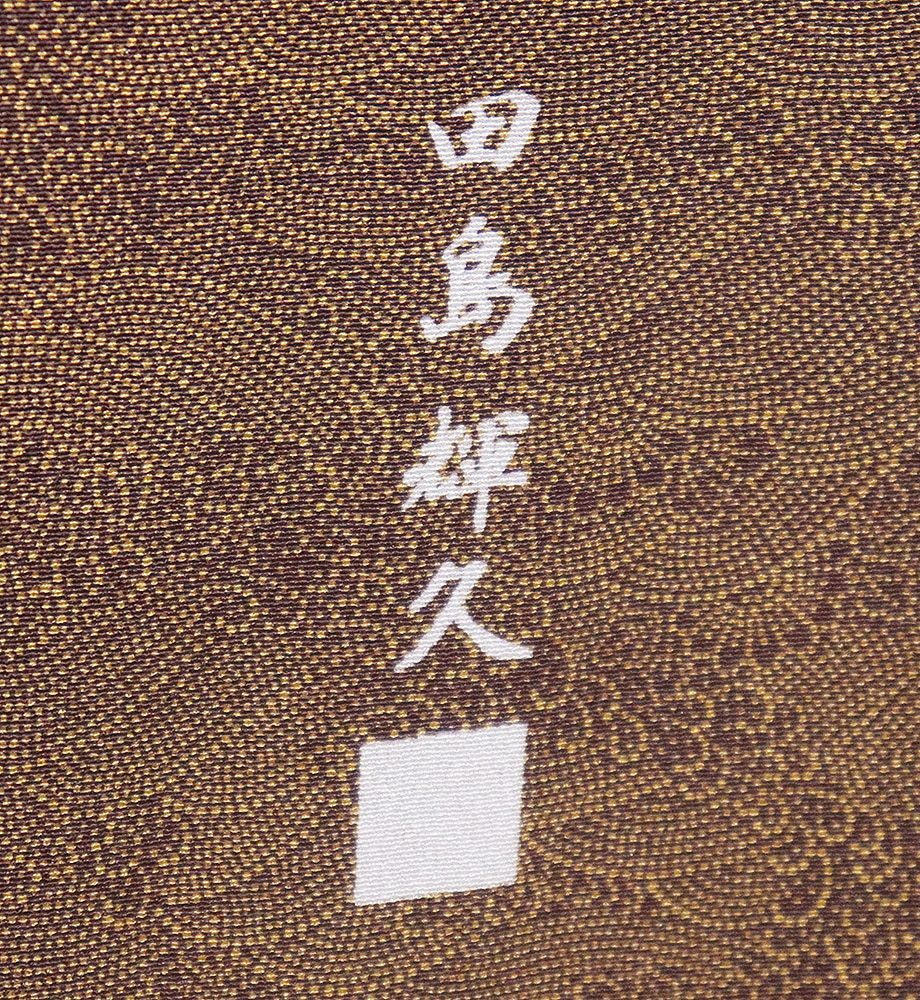 田島輝久